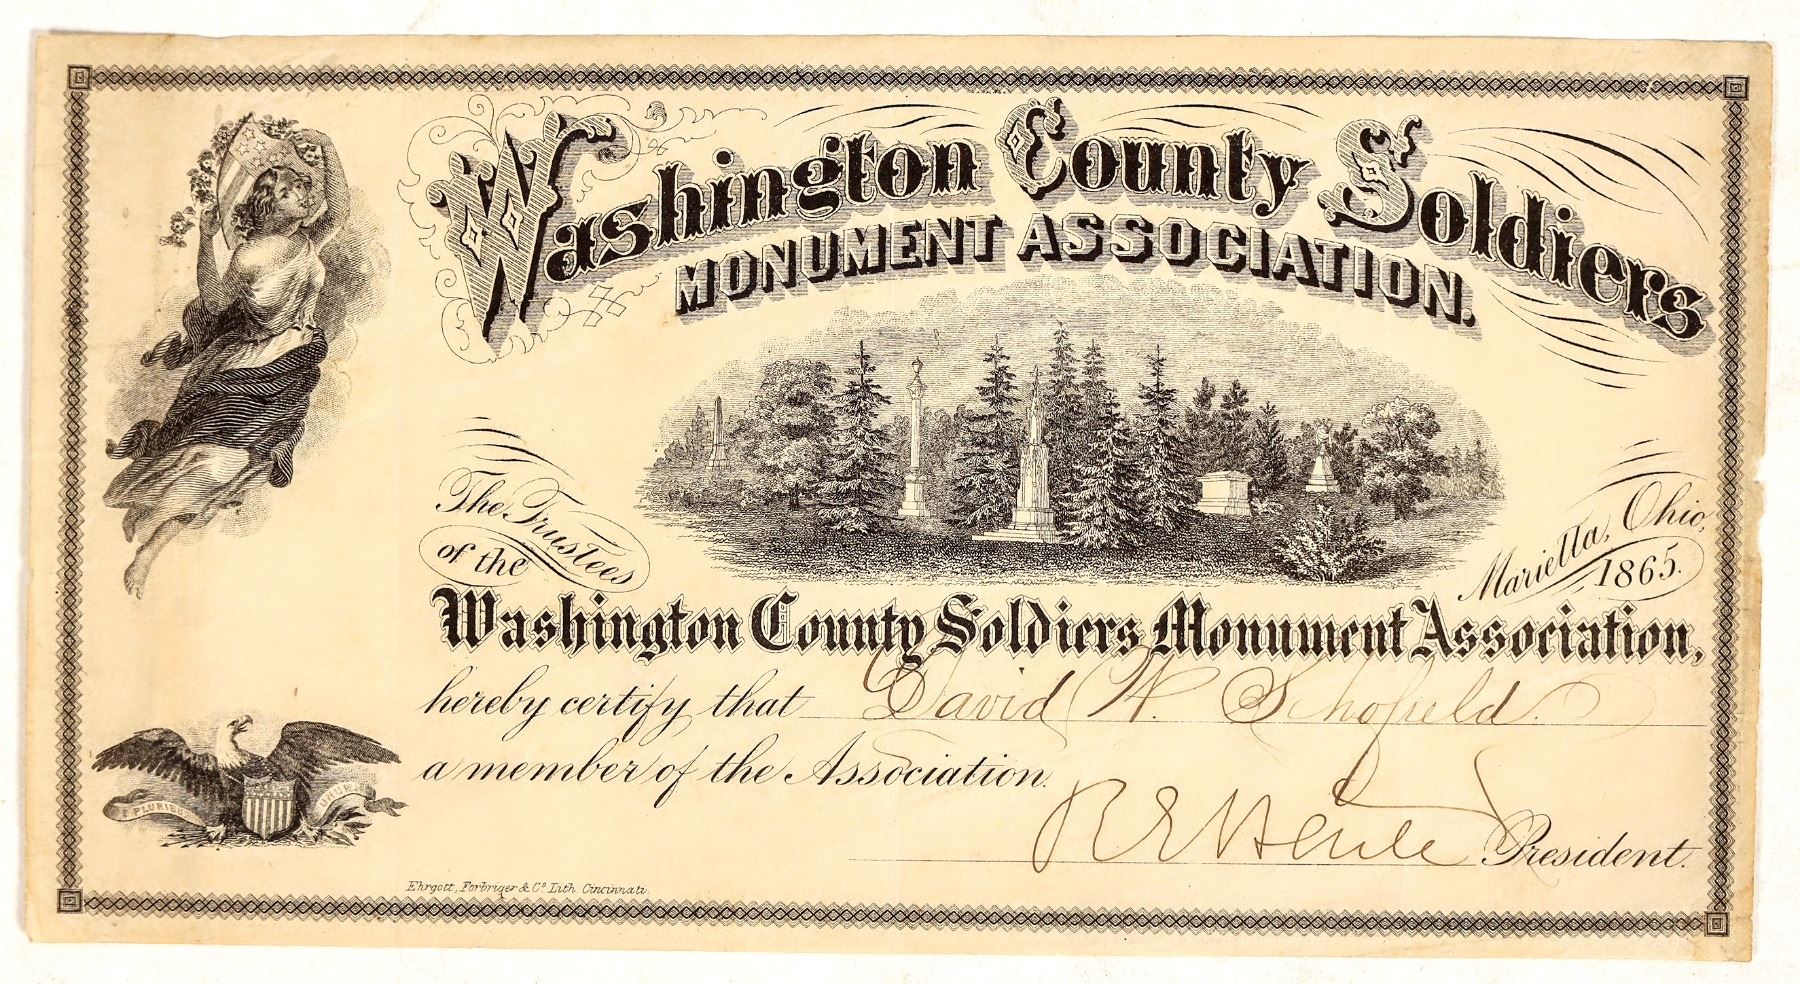 Washington County Soldiers
MONUMENT ASSOCIATION.
The Trustees
of the
Marietta, Ohio,
1865.
Washington County Soldiers Monument Association,
hereby certify that David W. Schofield.
a member of the Association.
President.
E PLURIBUS UNUM
Ehrgott, Forbriger & Co. Lith. Cincinnati.